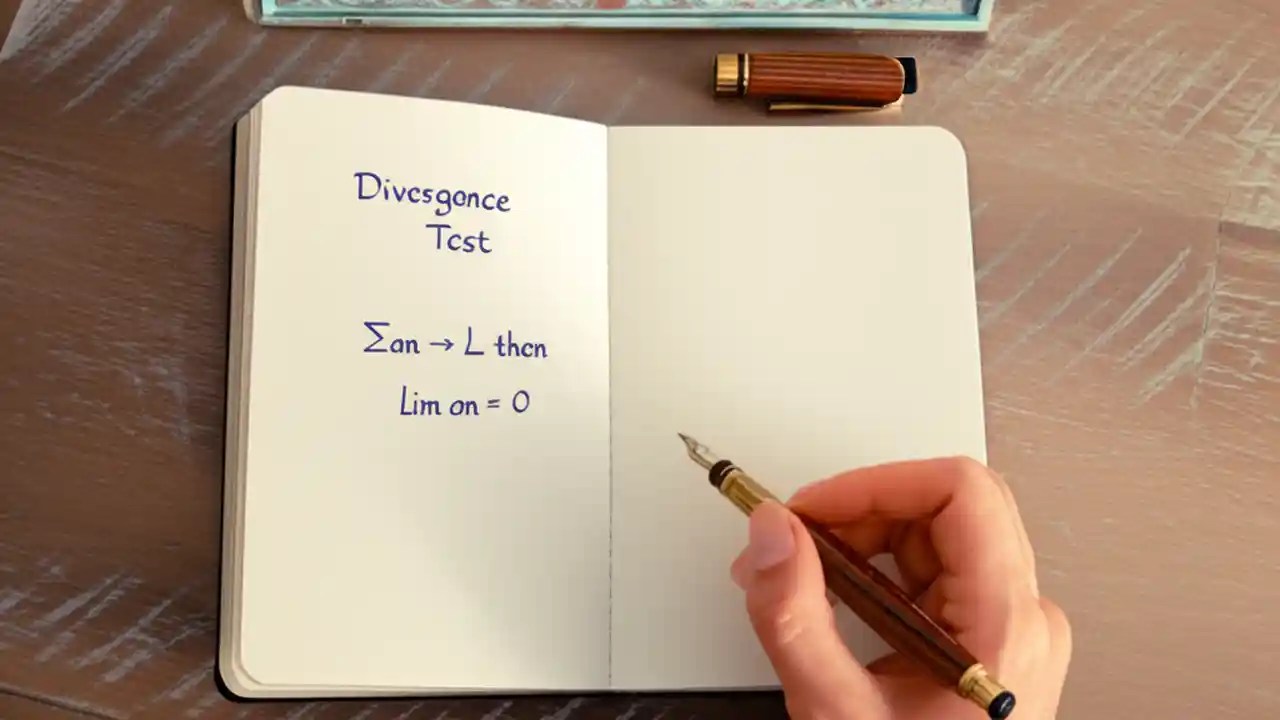 Divesgence
Test
Σan → L then
Lim an = 0